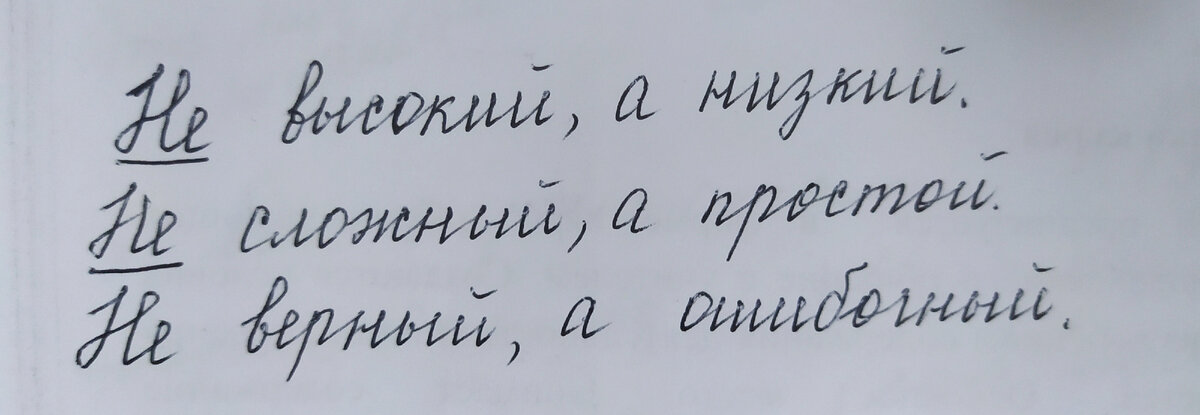 Не высокий, а низкий.
Не сложный, а простой.
Не верный, а ошибочный.